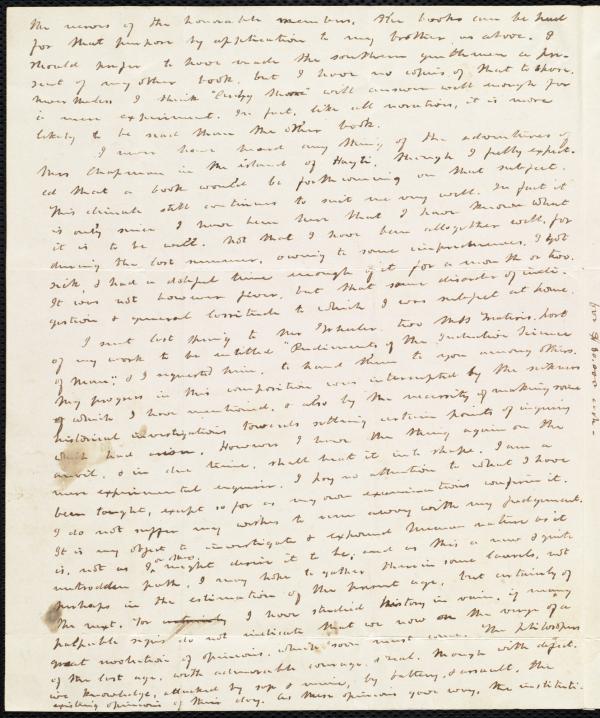 the nerves of the honorable members. The books can be had
for that purpose by application to my brother as above. I
should prefer to have made the southern gentlemen a pre-
sent of my other book, but I have no copies of that to spare.
Nevertheless I think "Archy Moore" will answer well enough for
a mere experiment. In fact, like all narratives, it is more
likely to be read than the other book.
I never have heard any thing of the adventures of
Mrs Chapman in the island of Hayti, though I fully expect-
ed that a book would be forthcoming on that subject.
This climate still continues to suit me very well. In fact it
is only since I have been here that I have known what
it is to be well. Not that I have been altogether well, for
during the last summer, owing to some imprudences, I got
sick, & had a doleful time enough of it for a month or two.
It was not however fever, but that same disorder of indi-
gestion & general lassitude to which I was subject at home.
I sent last spring to Mr two Mss , part
of my work to be entitled "Rudiments of the Inductive Science
of Man," & I requested him, to hand them to you among others.
My progress in this composition was interrupted by the sickness
of which I have mentioned, & also by the necessity of making some
historical investigations towards settling certain points of inquiry
which had arisen. However I have the thing again on the
anvil, & in due time, shall beat it into shape. I am a
mere experimental enquirer. I pay no attention to what I have
been taught, except so far as my own examinations confirm it.
I do not suffer my wishes to run away with my judgment.
It is my object to investigate & expound human nature as it
is, not as I or others might desire it to be; and as this a new & quite
untrodden path, I may hope to gather therein some laurels, not
perhaps in the estimation of the present age, but certainly of
the next. For I have studied history in vain, if many
palpable signs do not indicate that we now on the verge of a
great revolution of opinions, which soon must come. The philosophers
of the last age, with admirable courage & zeal, though with defect-
ive knowledge, attacked by sap & mine, by battery & assault, the
existing opinions of their day. As these opinions gave way, the instituti-